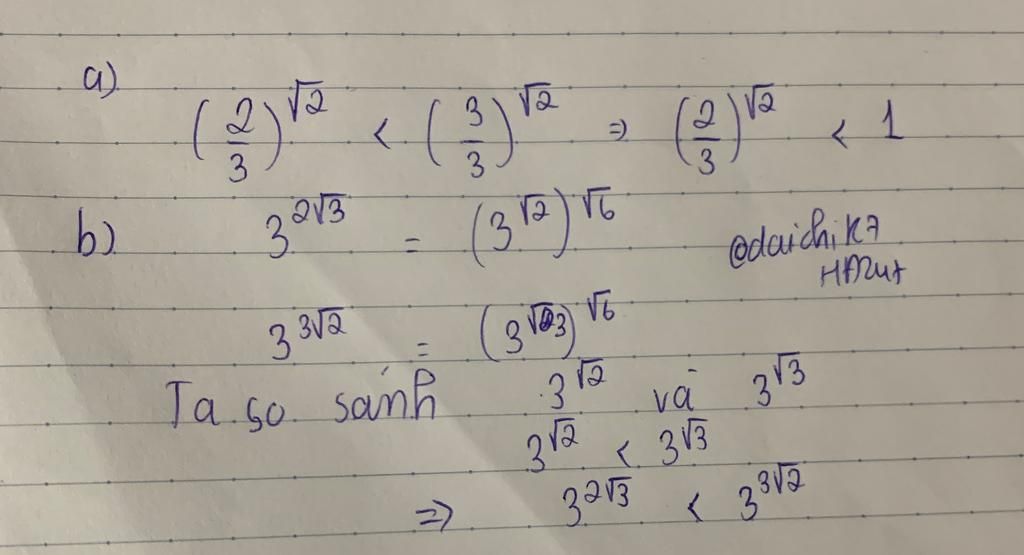 a)
(2/3)^√2 < (3/3)^√2 ⇒ (2/3)^√2 < 1
b) 3^2√3 = (3^√2)^√6
@daichik7
3^3√2 = (3^√3)^√6
Ta so sánh 3^√2 và 3^√3
3^√2 < 3^√3
⇒ 3^2√3 < 3^3√2